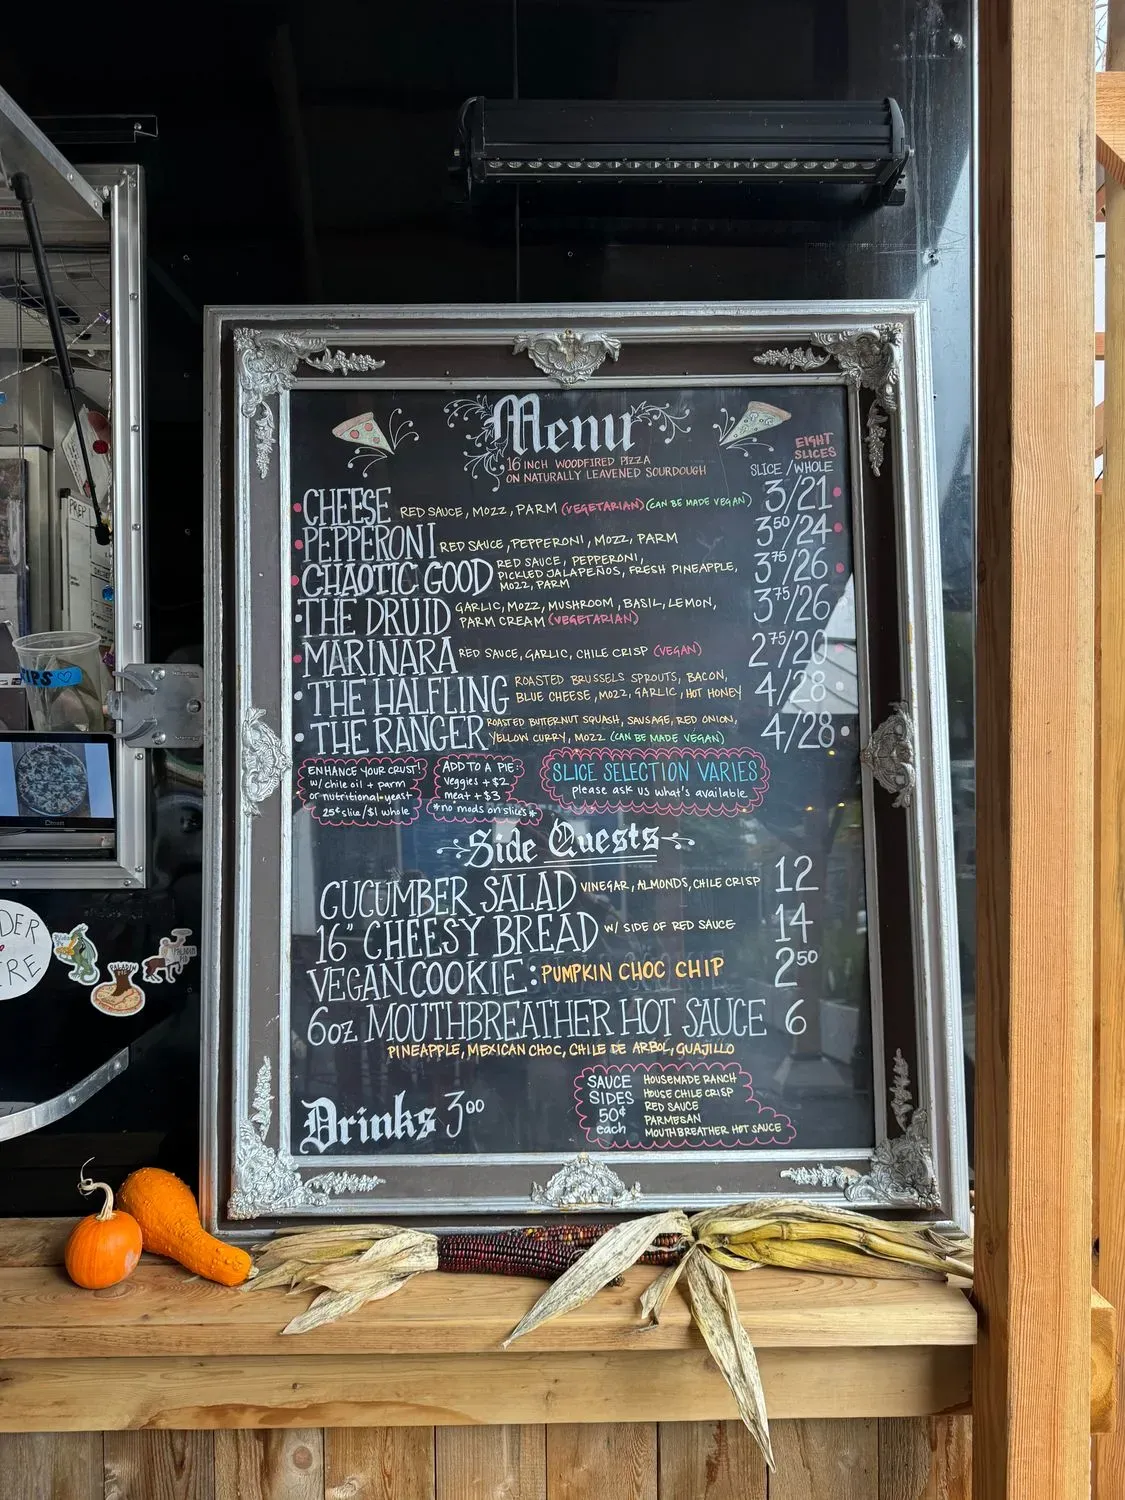 Menu
16 INCH WOODFIRED PIZZA
ON NATURALLY LEAVENED SOURDOUGH
EIGHT
SLICES
SLICE / WHOLE
CHEESE RED SAUCE, MOZZ, PARM (VEGETARIAN) (CAN BE MADE VEGAN) 3/21
PEPPERONI RED SAUCE, PEPPERONI, MOZZ, PARM 3⁵⁰/24
CHAOTIC GOOD RED SAUCE, PEPPERONI,
PICKLED JALAPEÑOS, FRESH PINEAPPLE,
MOZZ, PARM 3⁷⁵/26
THE DRUID GARLIC, MOZZ, MUSHROOM, BASIL, LEMON,
PARM CREAM (VEGETARIAN) 3⁷⁵/26
MARINARA RED SAUCE, GARLIC, CHILE CRISP (VEGAN) 2⁷⁵/20
THE HALFLING ROASTED BRUSSELS SPROUTS, BACON,
BLUE CHEESE, MOZZ, GARLIC, HOT HONEY 4/28
THE RANGER ROASTED BUTTERNUT SQUASH, SAUSAGE, RED ONION,
YELLOW CURRY, MOZZ (CAN BE MADE VEGAN) 4/28
ENHANCE YOUR CRUST!
w/ chile oil + parm
or nutritional yeast
25¢ slice/$1 whole
ADD TO A PIE:
veggies + $2
meat + $3
*no mods on slices*
SLICE SELECTION VARIES
please ask us what's available
Side Quests
CUCUMBER SALAD VINEGAR, ALMONDS, CHILE CRISP 12
16" CHEESY BREAD W/ SIDE OF RED SAUCE 14
VEGAN COOKIE: PUMPKIN CHOC CHIP 2⁵⁰
6oz MOUTHBREATHER HOT SAUCE 6
PINEAPPLE, MEXICAN CHOC, CHILE DE ARBOL, GUAJILLO
Drinks 3⁰⁰
SAUCE
SIDES
50¢
each
HOUSEMADE RANCH
HOUSE CHILE CRISP
RED SAUCE
PARMESAN
MOUTHBREATHER HOT SAUCE
TIPS
PREP
DER
RE
PALADIN
PIE